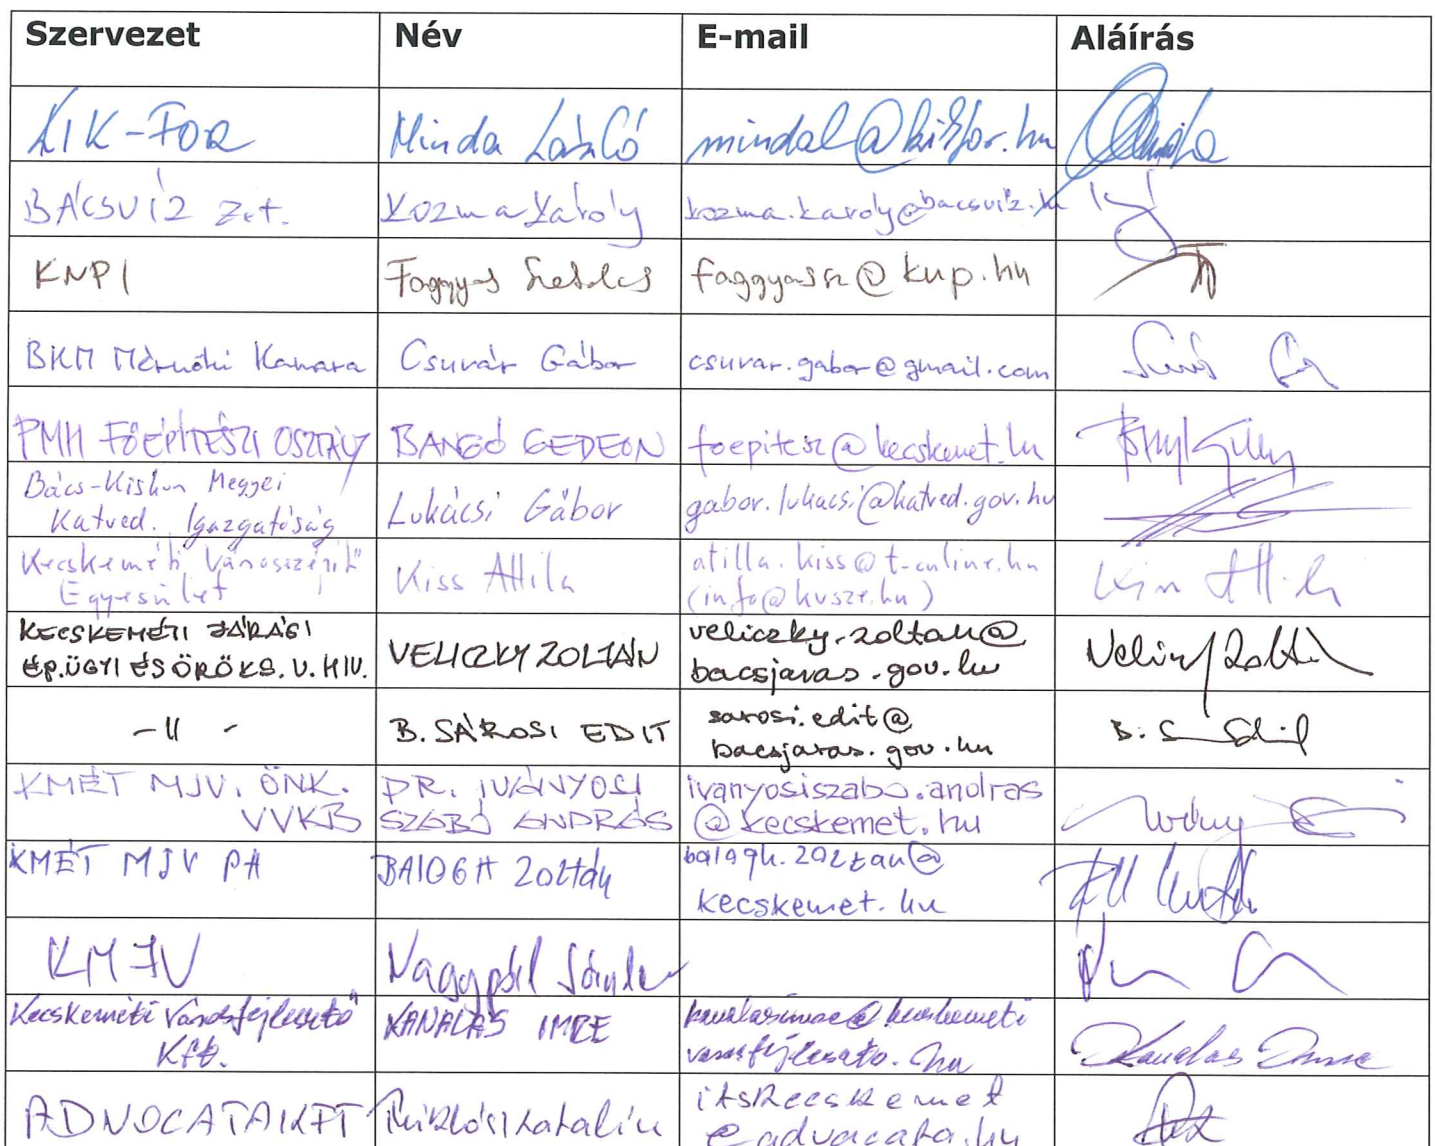 Szervezet Név E-mail Aláírás
KIK-FOR Minda László mindal@kikfor.hu
BÁCSVÍZ Zrt. Kozma Károly kozma.karoly@bacsviz.hu
KNPI Faggyas Szabolcs faggyassz@knp.hu
BKM Mérnöki Kamara Csuvár Gábor csuvar.gabor@gmail.com
PMH FŐÉPÍTÉSZI OSZTÁLY BANGÓ GEDEON foepitesz@kecskemet.hu
Bács-Kiskun Megyei
Katved. Igazgatóság Lukácsi Gábor gabor.lukacsi@katved.gov.hu
Kecskeméti Városszépítő
Egyesület Kiss Attila atilla.kiss@t-online.hu
(info@kvsze.hu) Kiss Attila
KECSKEMÉTI JÁRÁSI
ÉP.ÜGYI ÉS ÖRÖKS.V.HIV. VELICZKY ZOLTÁN veliczky.zoltan@
bacsjaras.gov.hu Veliczky Zoltán
-11- B. SÁROSI EDIT sarosi.edit@
bacsjaras.gov.hu
KMÉT MJV. ÖNK.
VVKB DR. IVÁNYOSI
SZABÓ ANDRÁS ivanyosiszabo.andras
@kecskemet.hu
KMÉT MJV PH BALOGH Zoltán balogh.zoltan@
kecskemet.hu
KMJV Nagypál Sándor
Kecskeméti Városfejlesztő
Kft. KANALAS IMRE kanalasimre@kecskemeti
varosfejleszto.hu Kanalas Imre
ADVOCATA KFT Miklósi Katalin itskecskemet
@advocata.hu